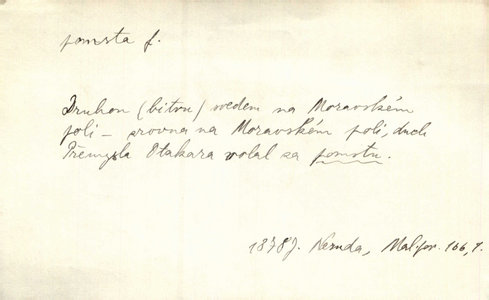 pomsta f.
Druhou (bitvu) svedem na Moravském
poli – zrovna na Moravském poli, duch
Přemysla Otakara volal za pomstu.
1878 J. Neruda, Mal. pov. 166, 1.